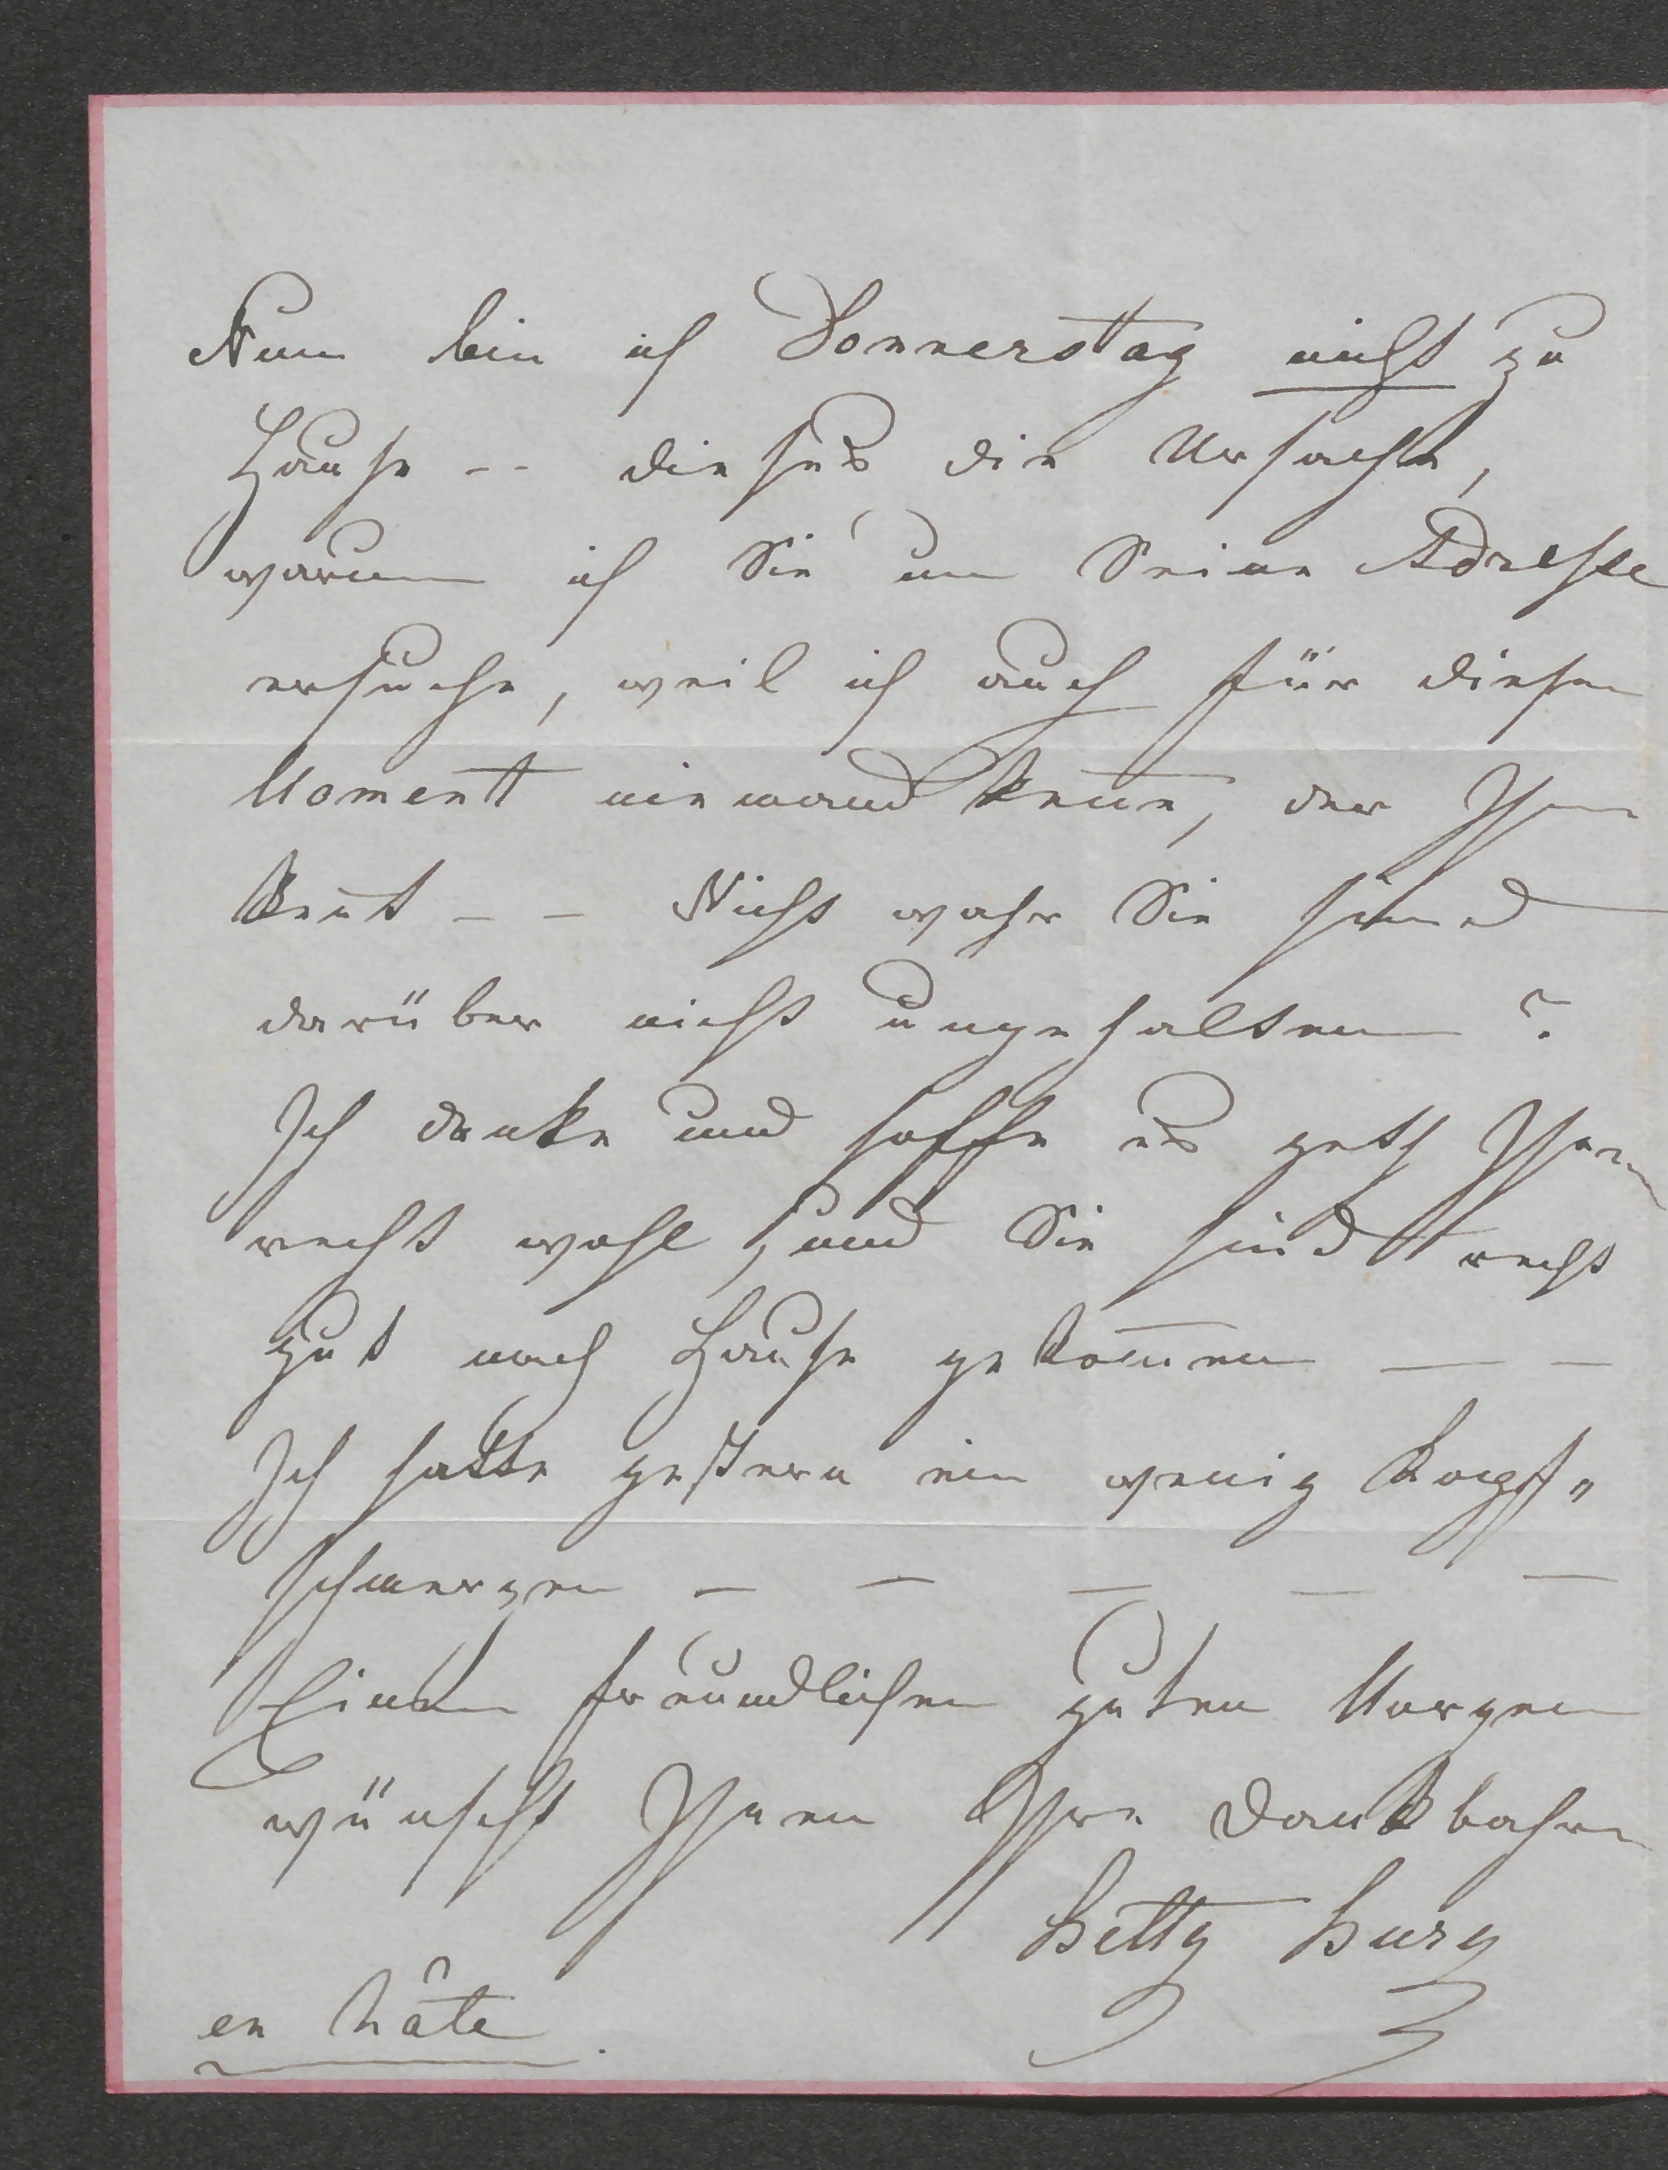 Nun bin ich Donnerstag nicht zu
Hause -- dieses die Ursache,
warum ich Sie um Seine Adresse
ersuche, weil ich auch für diesen
Moment niemand kenne, der Ihn
kent -- Nicht wahr Sie sind
darüber nicht ungehalten?
Ich denke und hoffe es geth Ihnen
recht wohl, und Sie sind recht
gut nach Hause gekom̅en — —
Ich hatte gestern ein wenig Kopf„
schmerzen — — — — —
Einen freundlichen guten Morgen
wünscht Ihnen Ihre dankbahre
Betty Bury
en hâte.